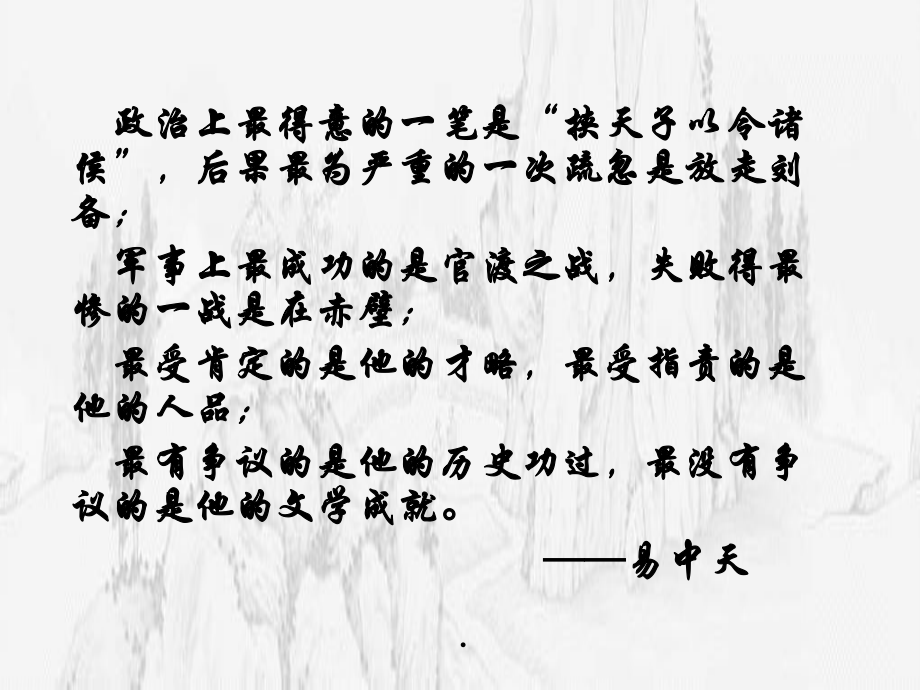 政治上最得意的一笔是“挟天子以令诸
侯”，后果最为严重的一次疏忽是放走刘
备；
军事上最成功的是官渡之战，失败得最
惨的一战是在赤壁；
最受肯定的是他的才略，最受指责的是
他的人品；
最有争议的是他的历史功过，最没有争
议的是他的文学成就。
——易中天
.